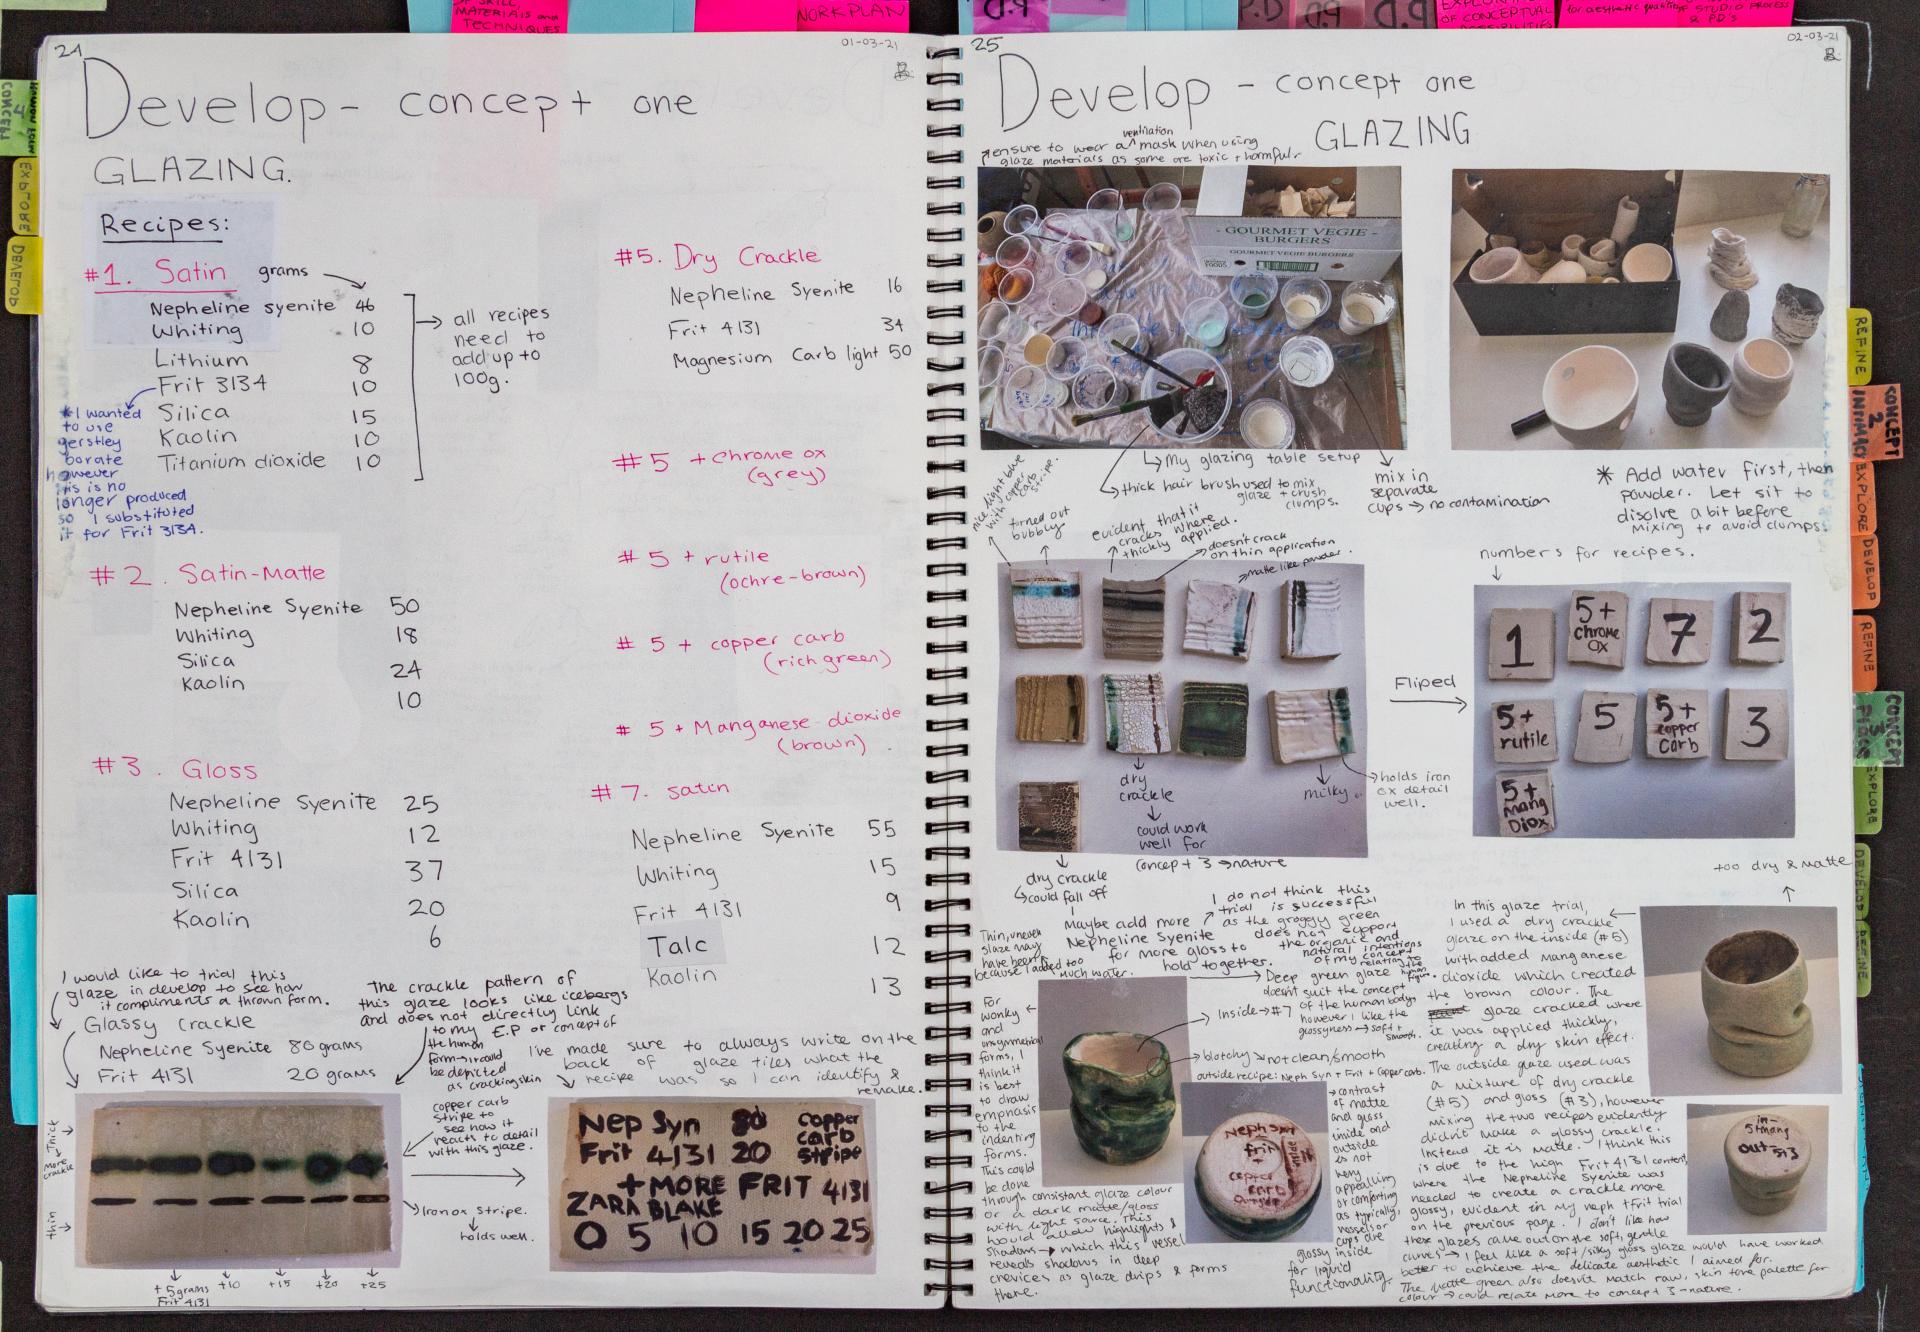 OF SKILL,
MATERIALS AND
TECHNIQUES
WORK PLAN
24
01-03-21
Develop - concept one
GLAZING.
Recipes:
#1. Satin grams
Nepheline syenite 46
Whiting 10
Lithium 8
Frit 3134 10
Silica 15
Kaolin 10
Titanium dioxide 10
all recipes
need to
add up to
100g.
* I wanted
to use
gerstley
borate
however
this is no
longer produced
so I substituted
it for Frit 3134.
#2. Satin-Matte
Nepheline Syenite 50
Whiting 18
Silica 24
Kaolin 10
#3. Gloss
Nepheline Syenite 25
Whiting 12
Frit 4131 37
Silica 20
Kaolin 6
I would like to trial this
glaze in develop to see how
it compliments a thrown form.
Glassy Crackle
Nepheline Syenite 80 grams
Frit 4131 20 grams
The crackle pattern of
this glaze looks like icebergs
and does not directly link
to my E.P or concept of
the human
form → could
be depicted
as cracking skin
#5. Dry Crackle
Nepheline Syenite 16
Frit 4131 34
Magnesium Carb light 50
#5 + Chrome ox
(grey)
#5 + rutile
(ochre-brown)
#5 + copper carb
(rich green)
#5 + Manganese dioxide
(brown).
#7. Satin
Nepheline Syenite 55
Whiting 15
Frit 4131 9
Talc 12
Kaolin 13
I've made sure to always write on the
back of glaze tiles what the
recipe was so I can identify &
remake.
Thick
More crackle
thin
copper carb
stripe to
see how it
reacts to detail
with this glaze.
Iron ox stripe.
holds well.
+5grams +10 +15 +20 +25
Frit 4131
Nep Syn 80 copper
Frit 4131 20 carb
stripe
+ MORE FRIT 4131
ZARA BLAKE
0 5 10 15 20 25
25
02-03-21
Develop - concept one
GLAZING
ensure to wear a ventilation mask when using
glaze materials as some are toxic + harmful.
- GOURMET VEGIE -
BURGERS
GOURMET VEGIE BURGERS
My glazing table setup
thick hair brush used to mix
glaze + crush
clumps.
mix in
separate
cups → no contamination
* Add water first, then
powder. Let sit to
disolve a bit before
mixing to avoid clumps.
nice light blue
with copper
carb
stripe.
turned out
bubbly
evident that it
cracks where
thickly applied.
doesn't crack
on thin application
matte like powder.
numbers for recipes.
Fliped
1
5+
chrome
ox
7
2
5+
rutile
5
5+
copper
carb
3
5+
mang
Diox
dry
crackle
could work
well for
concept 3 → nature
milky.
holds iron
ox detail
well.
dry crackle
could fall off
Maybe add more
Nepheline Syenite
for more gloss to
hold together.
Thin, uneven
glaze may
have been
because I added too
much water.
I do not think this
trial is successful
as the groggy green
does not support
the organic and
natural intentions
of my concept
relating to
the human
figure.
Deep green glaze
doesn't suit the concept
of the human body,
however I like the
glossyness → soft +
smooth.
Inside → #7
blotchy → not clean/smooth
outside recipe: Neph Syn + Frit + Copper carb.
For
wonky
and
unsymmetrical
forms, I
think it
is best
to draw
emphasis
to the
indenting
forms.
This could
be done
through consistant glaze colour
or a dark matte/gloss
with light source. This
would allow highlights &
shadows → which this vessel
reveals shadows in deep
crevices as glaze drips & forms
there.
contrast
of matte
and gloss
inside and
outside
is not
very
appealling
or comforting
as typically,
vessels or
cups are
glossy inside
for liquid
functionality.
Neph syn
frit
+
copper
carb
outside
too dry & matte
In this glaze trial,
I used a dry crackle
glaze on the inside (#5)
with added manganese
dioxide which created
the brown colour. The
glaze cracked where
it was applied thickly,
creating a dry skin effect.
The outside glaze used was
a mixture of dry crackle
(#5) and gloss (#3), however
mixing the two recipes evidently
didn't make a glossy crackle.
Instead it is matte. I think this
is due to the high Frit 4131 content,
where the Nepheline Syenite was
needed to create a crackle more
glossy, evident in my neph + frit trial
on the previous page. I don't like how
these glazes came out on the soft, gentle
curves → I feel like a soft/silky gloss glaze would have worked
better to achieve the delicate aesthetic I aimed for.
The matte green also doesn't match raw, skin tone palette for
colour → could relate more to concept 3 - nature.
in-
5+mang
out-5+3
EXPLORE
DEVELOP
REFINE
CONCEPT
2
EXPLORE
DEVELOP
REFINE
CONCEPT
3
EXPLORE
DEVELOP
REFINE